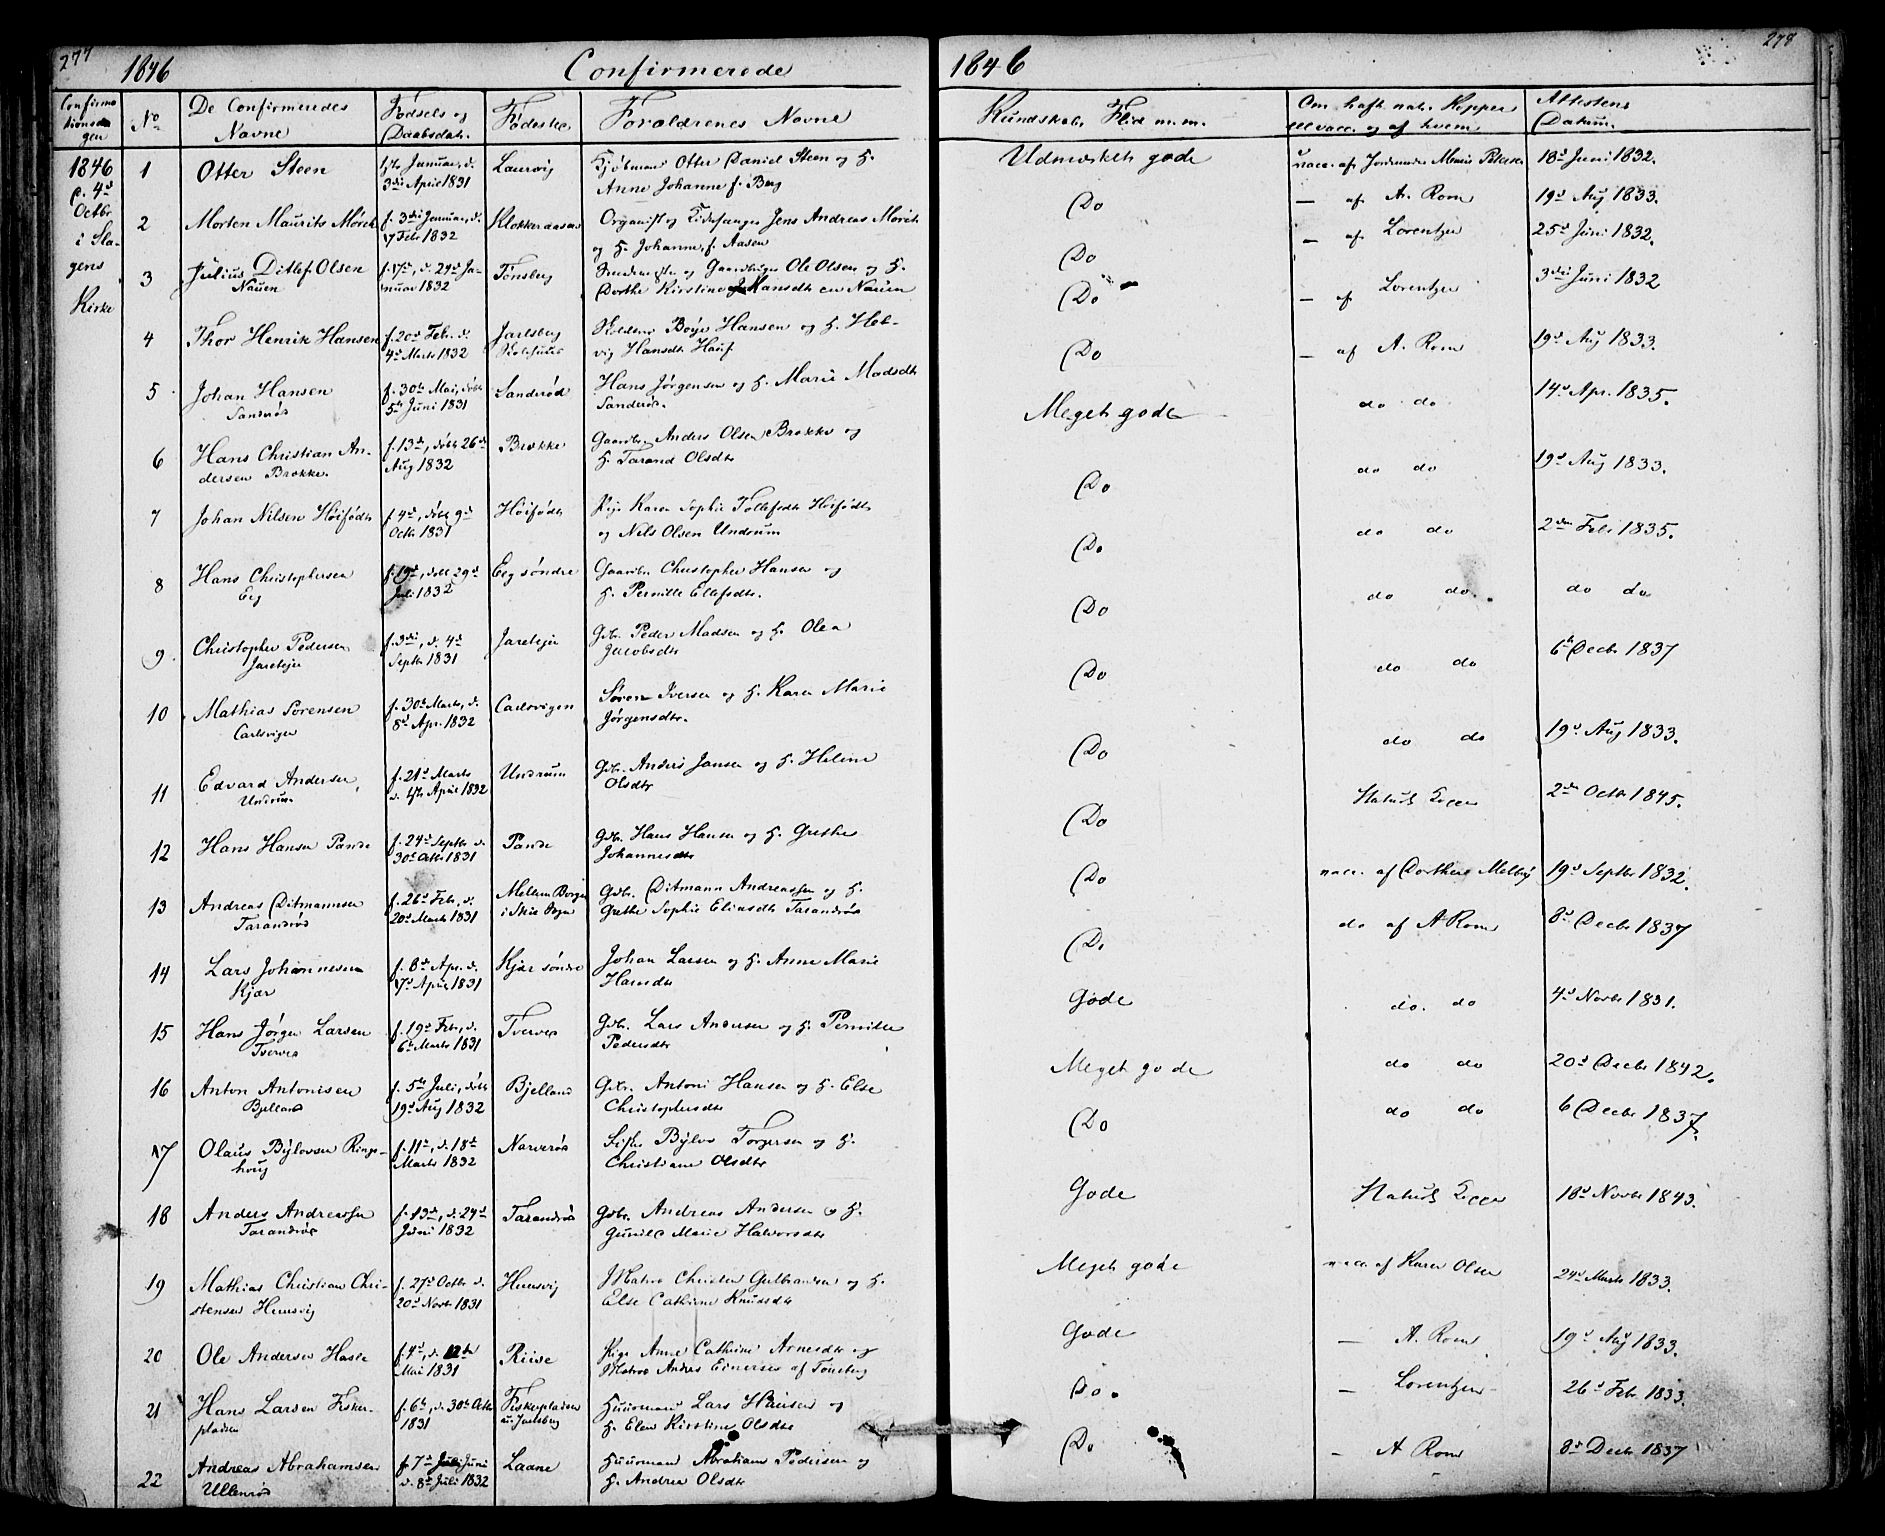 277
1846
Confirmerede
1846
278
Confirma
tionsda
gen
No
De Confirmeredes
Navne
Fødsels og
Daabsdat.
Fødested
Forældrenes Navne
Kundskab, Flid m.m.
Om havt nat. Kopper
ell vacc. og af hvem
Attestens
Datum.
1846
d. 4d
Octbr
i Sla-
gens
Kirke
1
Otter Steen
Januar, d.
3die April 1831
Laurvig
Kjøbmand Otter Daniel Steen og H.
Anne Johanne f. Berg
Udmærket gode
vacc. af Jordemoder Marie Petersen
18d Juni 1832.
2
Morten Maurits Mørch
f. 3die Januar, d.
7 Febr 1832
Klokkeraasen
Organist og Kirkesanger Jens Andreas Mørch
og H. Johanne, f. Aasen
Do
— af A. Rom
19d Aug 1833.
3
Julius Ditlef Olsen
Nauen
f. 17d, d. 29d Ja-
nuar 1832
Tønsberg
og Gaardbruger Ole Olsen og H.
Dorthe Kirstine Hansdtr Nauen
Do
— af Lorentzen
25d Juni 1832.
4
Thor Henrik Hansen
f. 20d Febr. d.
4d Marts 1832
Jarlsberg
Boye Hansen og H. Hed-
vig Hansdtr
Do
— af Lorentzen
3die Juni 1832
5
Johan Hansen
Sanderød
f. 30te Mai, døbt
5te Juni 1831
Sanderød
Hans Jørgensen og H. Marie Madsdtr
Sanderød.
Do
— af A. Rom
19d Aug 1833.
6
Hans Christian An-
dersen Brække.
f. 13de, døbt 26de
Aug 1832
Brække
Gaardbr. Anders Olsen Brække og
H. Tarand Olsdtr
Meget gode
do do
14d Apr. 1835.
7
Johan Nilsen Høifødt
f. 4d, døbt 9d
Octbr 1831
Høifødt
Pige Karen Sophie Tollefsdtr Høifødt
og Nils Olsen Undrum
Do
do do
19d Aug 1833.
8
Hans Christophersen
Eeg
f. 19d, døbt 29d
Juli 1832
Eeg søndre
Gaardbr. Christopher Hansen og
H. Pernille Ellefsdtr.
Do
do do
2den Febr 1835.
9.
Christopher Pedersen
Jareteju
f. 3die, d. 4d
Septbr 1831
Jareteju
Gdbr. Peder Madsen og H. Olea
Jacobsdtr
Do
do do.
do do
10
Mathias Sørensen
Carlsvigen
f. 30d Marts, d.
8d Apr. 1832
Carlsvigen
Søren Iversen og H. Karen Marie
Jørgensdtr.
Do
do do
6te Decbr 1837
11
Edvard Andersen,
Undrum
f. 21d Marts
d. April 1832
Undrum
Gdbr. Anders Jansen og H. Helene
Olsdtr
Do
do do
19d Aug 1833.
12
Hans Hansen Pande
f. 24d Septbr d.
30d Octbr 1831
Pande
Gdbr. Hans Hansen og H. Grethe
Johannesdtr
Do
Naturl. Kopper
2den Octbr 1845.
13
Andreas Ditmannsen
Tarandrød
f. 26d Febr, d.
20d Marts 1831
Mellem Borge
i Skie Sogn
Gdbr. Ditmann Andreassen og H.
Grethe Sophie Eliasdtr Tarandrød
Do
vacc. af Dorthea Melbÿ
19d Septbr 1832.
14
Lars Johannesen
Kjær
f. 8d Apr. d.
17d April 1831
Kjær søndre
Johan Larsen og H. Anne Marie
Hansdtr
Do
do af A Rom
8d Decbr 1837
15
Hans Jørgen Larsen
Tverved
f. 19d Febr, d.
6d Marts 1831
Tverved
Gdbr. Lars Andersen og H. Pernille
Pedersdtr
Gode
do. do
4d Novbr 1831.
16
Anton Antonisen
Bjelland
f. 5te Juli, døbt
19d Aug 1832
Bjelland
Gdbr. Antoni Hansen og H. Else
Christophersdtr
Meget gode
do do
20d Decbr 1842.
17
Olaus Bÿlovsen Rings-
houg
f. 11te, d. 18de
Marts 1832
Narverød
Bÿlov Torgersen og H.
Christiane Olsdtr
Do
do do
6 Decbr 1837.
18
Anders Andreassen
Tarandrød
f. 13de, d. 24de
Juni 1832
Tarandrød
Gdbr. Andreas Andersen og H.
Gunild Marie Halvorsdtr
Gode
Naturl. Kopper
18d Novbr 1843.
19
Mathias Christian Chri-
stensen Hemsvig
f. 27d Octbr d.
20d Novbr 1831
Hemsvig
Matros Christen Gulbrandsen og H.
Else Cathrine Knudsdtr
Meget gode
vacc. af Karen Olsen
24d Marts 1833.
20
Ole Andersen Hasle
f. 4d, d. 12te
Mai 1831
Riise
Pige Anne Cathrine Arnesdtr og
Matros Andreas Einersen af Tønsberg
Gode
— A. Rom
19d Aug 1833.
21
Hans Larsen Fisker-
pladsen
f. 6te, d. 30te Octbr
1831
Fiskerpladsen
u. Jarlsberg
Huusmand Lars Hansen og
H. Elen Kirstine Olsdtr
Do.
— Lorentzen
26d Febr 1833.
22
Andreas Abrahamsen
Ullenrød
f. 7de Juni
d. 8d Juli 1832
Laane
Huusmand Abraham Pedersen og
H. Andrea Olsdtr
Do
— A Rom
8d Decbr 1837